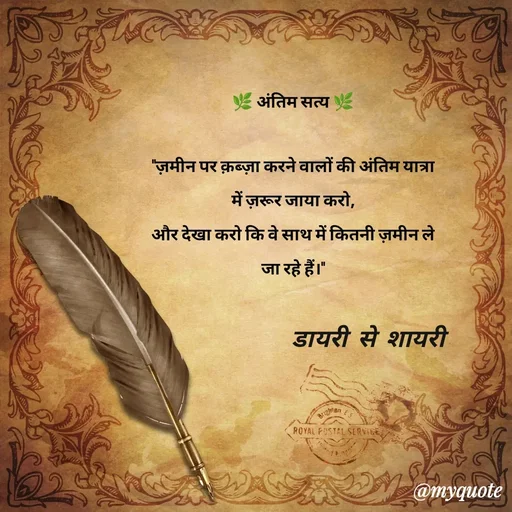 🌿 अंतिम सत्य 🌿
"ज़मीन पर क़ब्ज़ा करने वालों की अंतिम यात्रा
में ज़रूर जाया करो,
और देखा करो कि वे साथ में कितनी ज़मीन ले
जा रहे हैं।"
डायरी से शायरी
ROYAL POSTAL SERVICE
@myquote